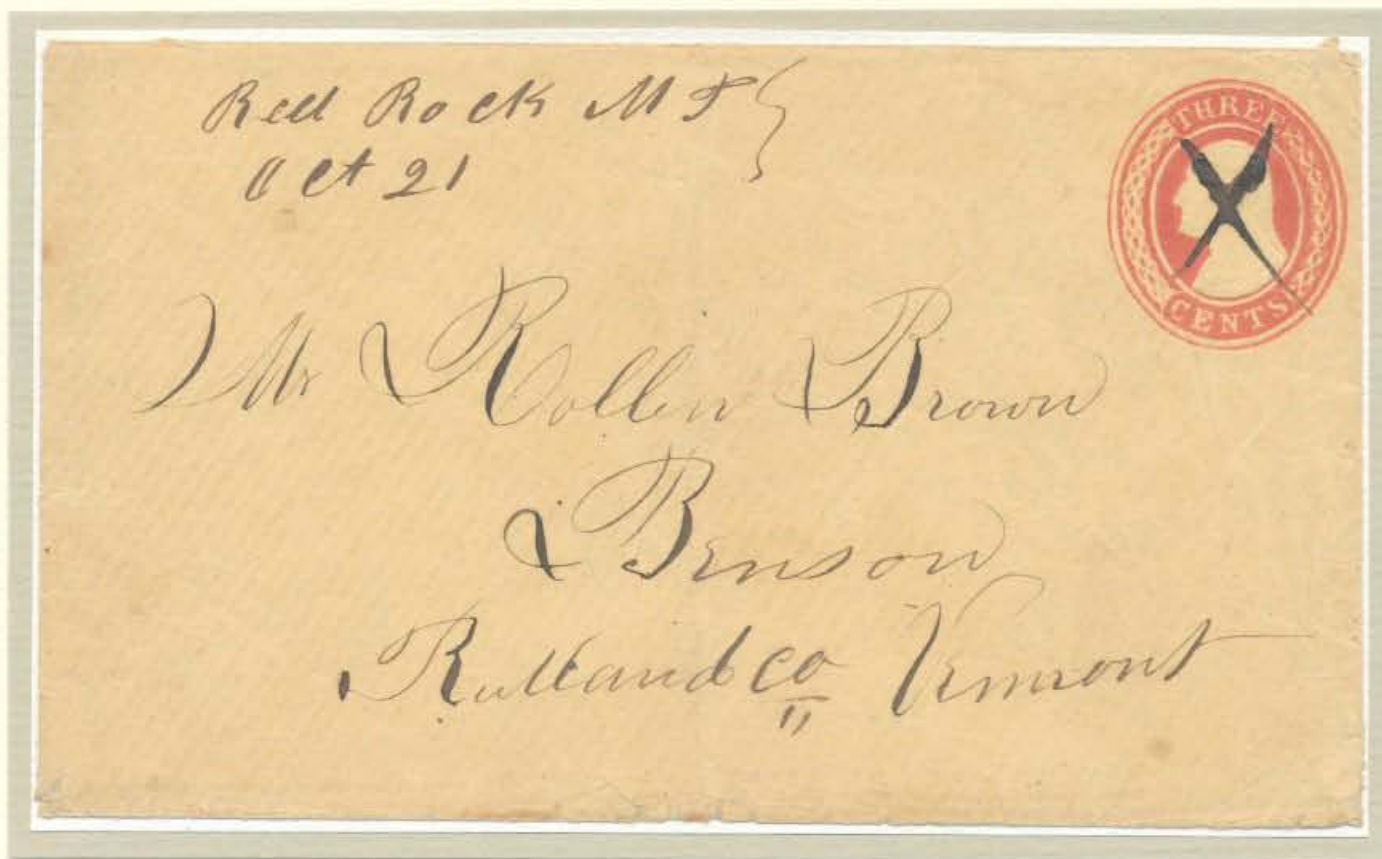 Red Rock M T
Oct 21
THREE
CENTS
Mr Rollin Brown
Benson
Rutland Co Vermont